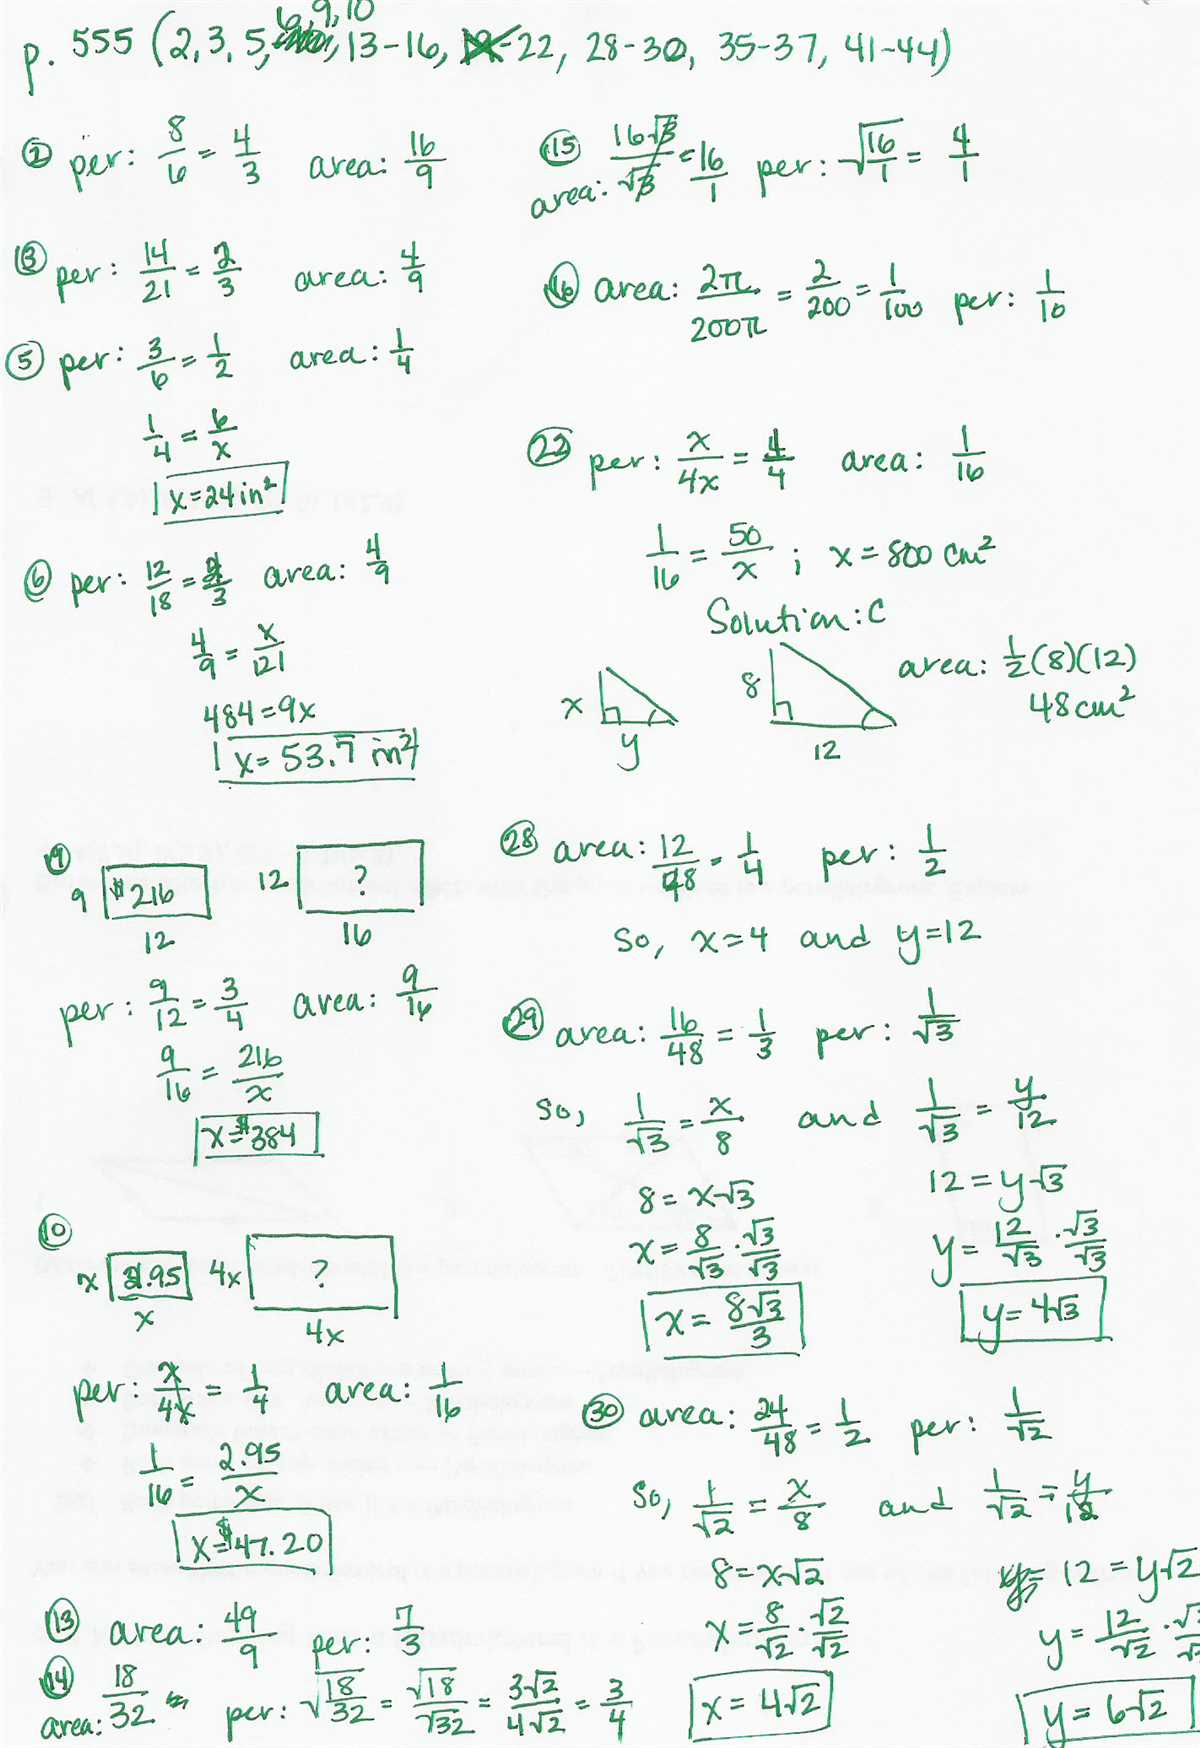 6, 9, 10
p. 555 (2, 3, 5, 13-16, 22, 28-30, 35-37, 41-44)
② per: 8/6 = 4/3 area: 16/9
③ per: 14/21 = 2/3 area: 4/9
⑤ per: 3/6 = 1/2 area: 1/4
1/4 = 6/x
x = 24 in²
⑥ per: 12/18 = 2/3 area: 4/9
4/9 = x/121
484 = 9x
x = 53.7̄ in²
⑨
9 $216 12 ?
12 16
per: 9/12 = 3/4 area: 9/16
9/16 = 216/x
x = $384
⑩
x 2.95 4x ?
x 4x
per: x/4x = 1/4 area: 1/16
1/16 = 2.95/x
x = $47.20
⑬ area: 49/9 per: 7/3
⑭ area: 18/32 per: √(18/32) = √18/√32 = 3√2/4√2 = 3/4
⑮ area: 16√3/√3 = 16/1 per: √(16/1) = 4/1
⑯ area: 2π/200π = 2/200 = 1/100 per: 1/10
㉒ per: x/4x = 1/4 area: 1/16
1/16 = 50/x ; x = 800 cm²
Solution: C
x y 8 12 area: 1/2(8)(12)
48 cm²
㉘ area: 12/48 = 1/4 per: 1/2
So, x = 4 and y = 12
㉙ area: 16/48 = 1/3 per: 1/√3
So, 1/√3 = x/8 and 1/√3 = y/12
8 = x√3 12 = y√3
x = 8/√3 · √3/√3 y = 12/√3 · √3/√3
x = 8√3/3 y = 4√3
㉚ area: 24/48 = 1/2 per: 1/√2
So, 1/√2 = x/8 and 1/√2 = y/12
8 = x√2 12 = y√2
x = 8/√2 · √2/√2 y = 12/√2 ·
x = 4√2 y = 6√2